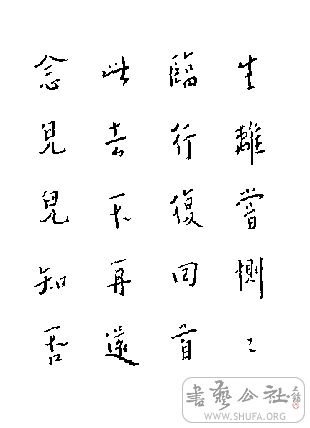 生離嘗惻〻
臨行復回首
此去不再還
念兒兒知否
書藝公社
WWW.SHUFA.ORG